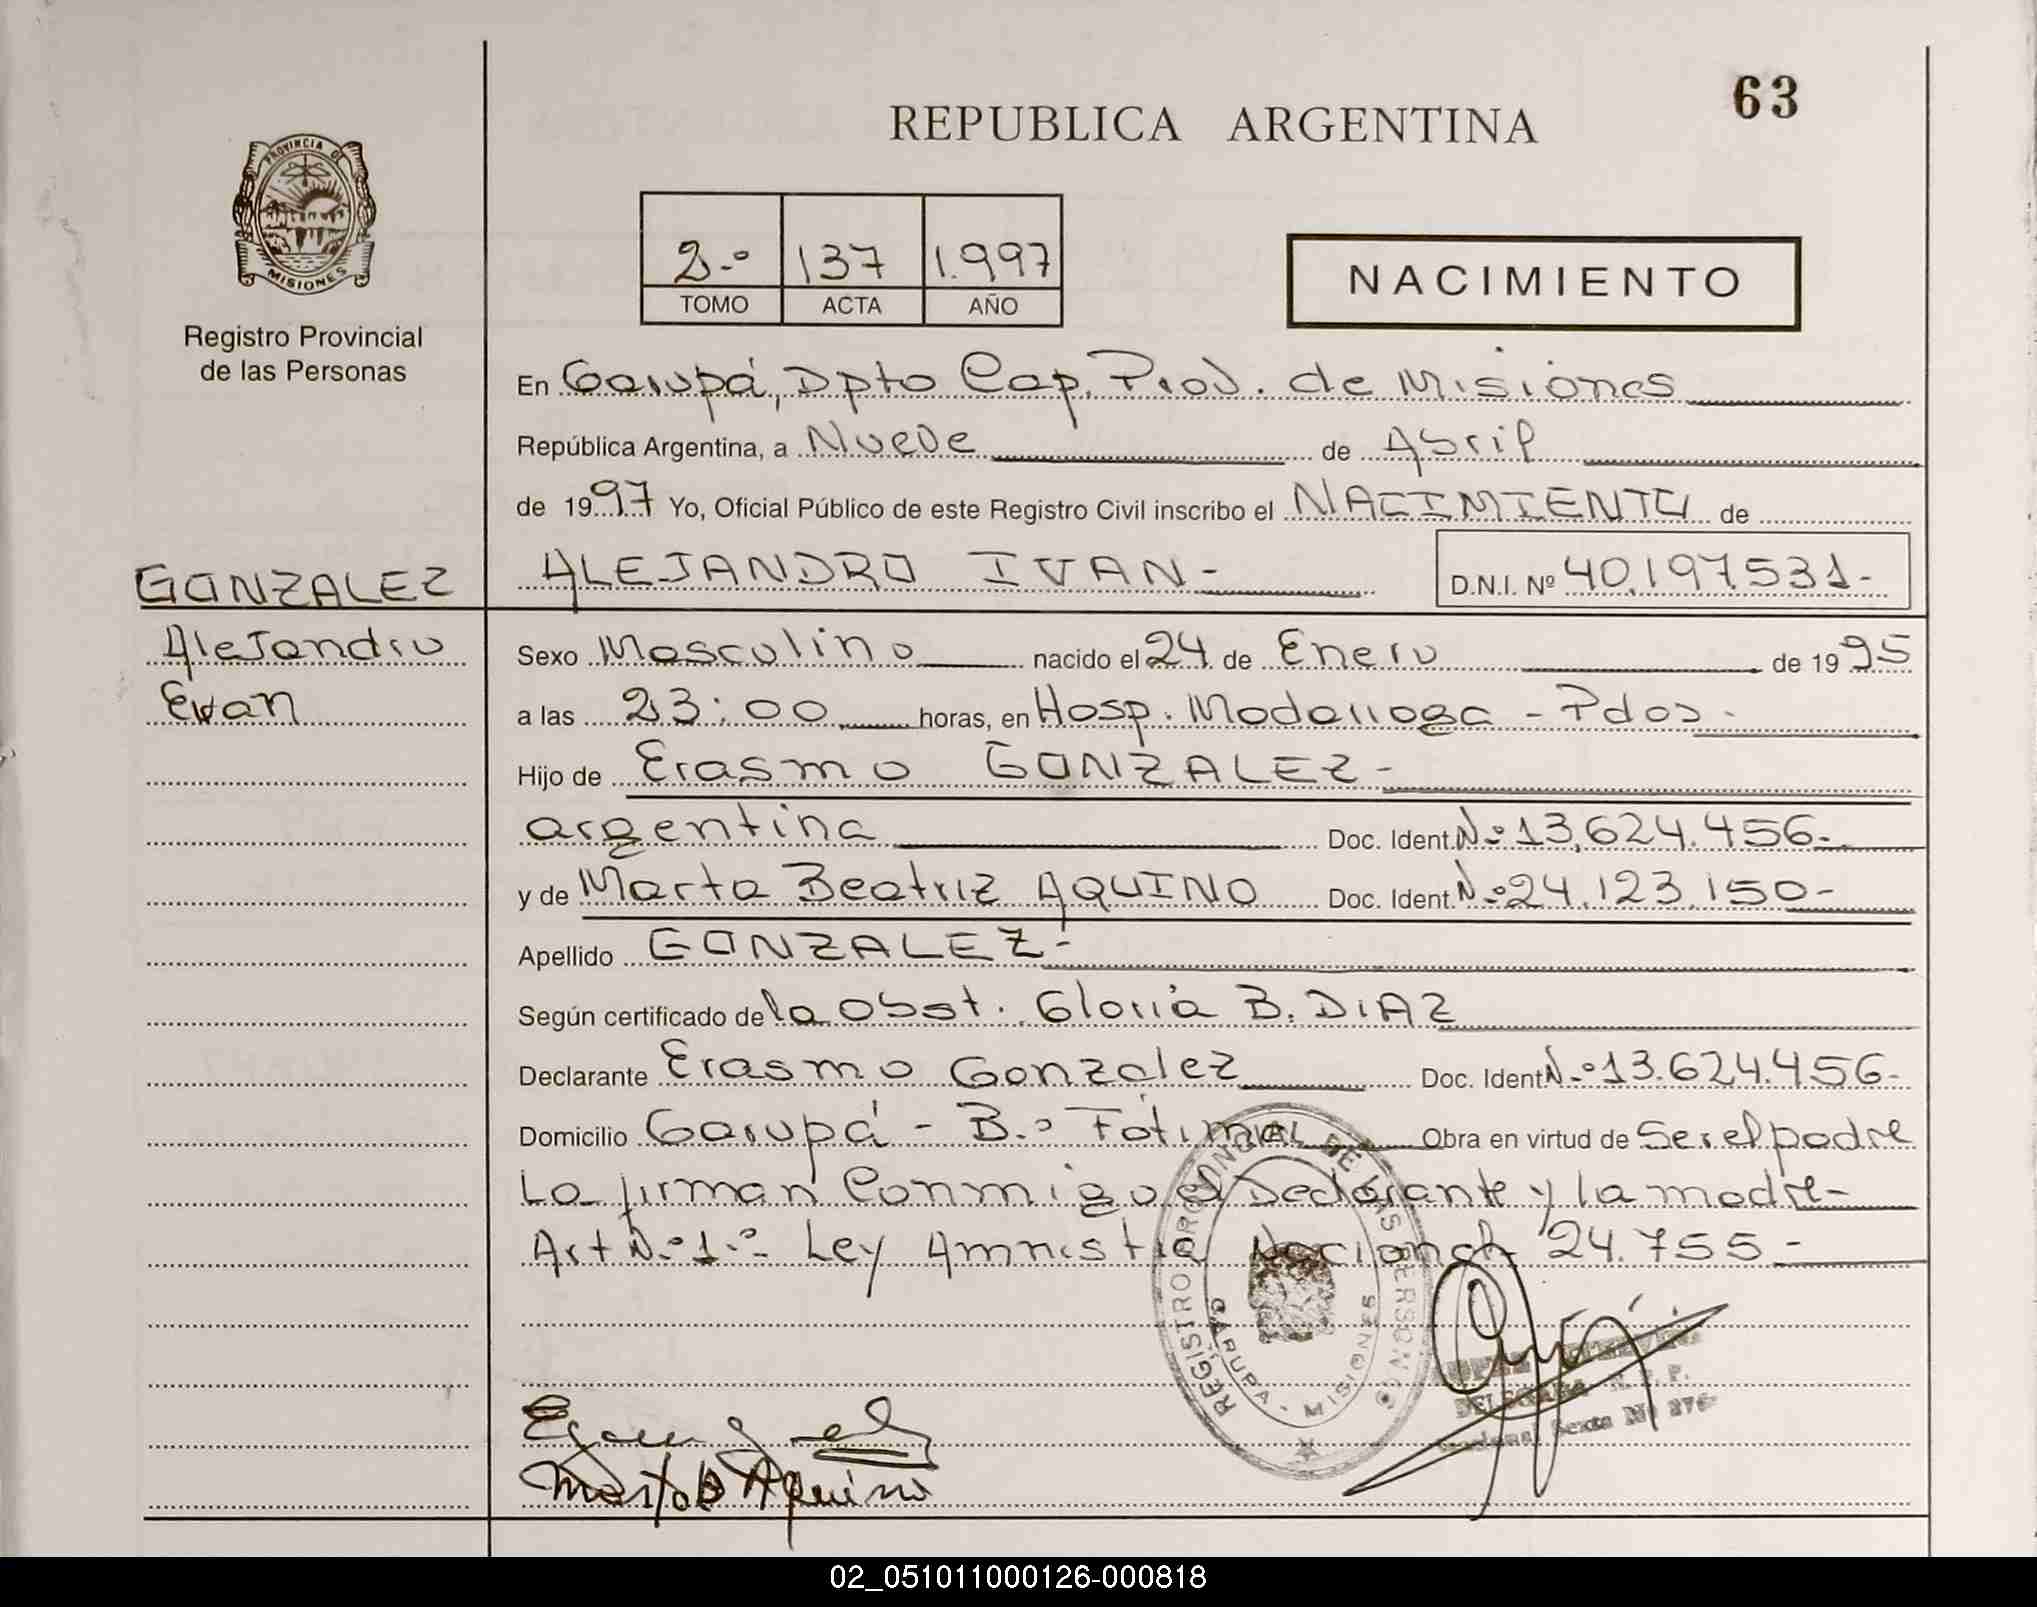 63
REPUBLICA ARGENTINA
PROVINCIA DE
MISIONES
Registro Provincial
de las Personas
2.º 137 1.997
TOMO ACTA AÑO
NACIMIENTO
En Garupá, Dpto Cap. Prov. de Misiones
República Argentina, a Nueve de Abril
de 1997 Yo, Oficial Público de este Registro Civil inscribo el NACIMIENTO de
GONZALEZ ALEJANDRO IVAN - D.N.I. Nº 40.197.531-
Alejandro Sexo Masculino nacido el 24 de Enero de 1995
Evan a las 23:00 horas, en Hosp. Madariaga - Pdas -
Hijo de Erasmo GONZALEZ -
argentina Doc. Ident. N.º 13.624.456-
y de Marta Beatriz AQUINO Doc. Ident. N.º 24.123.150-
Apellido GONZALEZ -
Según certificado de la Obst. Gloria B. DIAZ
Declarante Erasmo Gonzalez Doc. Ident N.º 13.624.456-
Domicilio Garupá - B.º Fátima Obra en virtud de Ser el padre
La firman Conmigo el Declarante y la madre-
Art N.º 1.º Ley Amnistia Nacional 24.755-
REGISTRO PROVINCIAL DE LAS PERSONAS
GARUPA - MISIONES
DELEGADA R. P. P.
Sexta Nº 276
Marta B Aquino
02_051011000126-000818